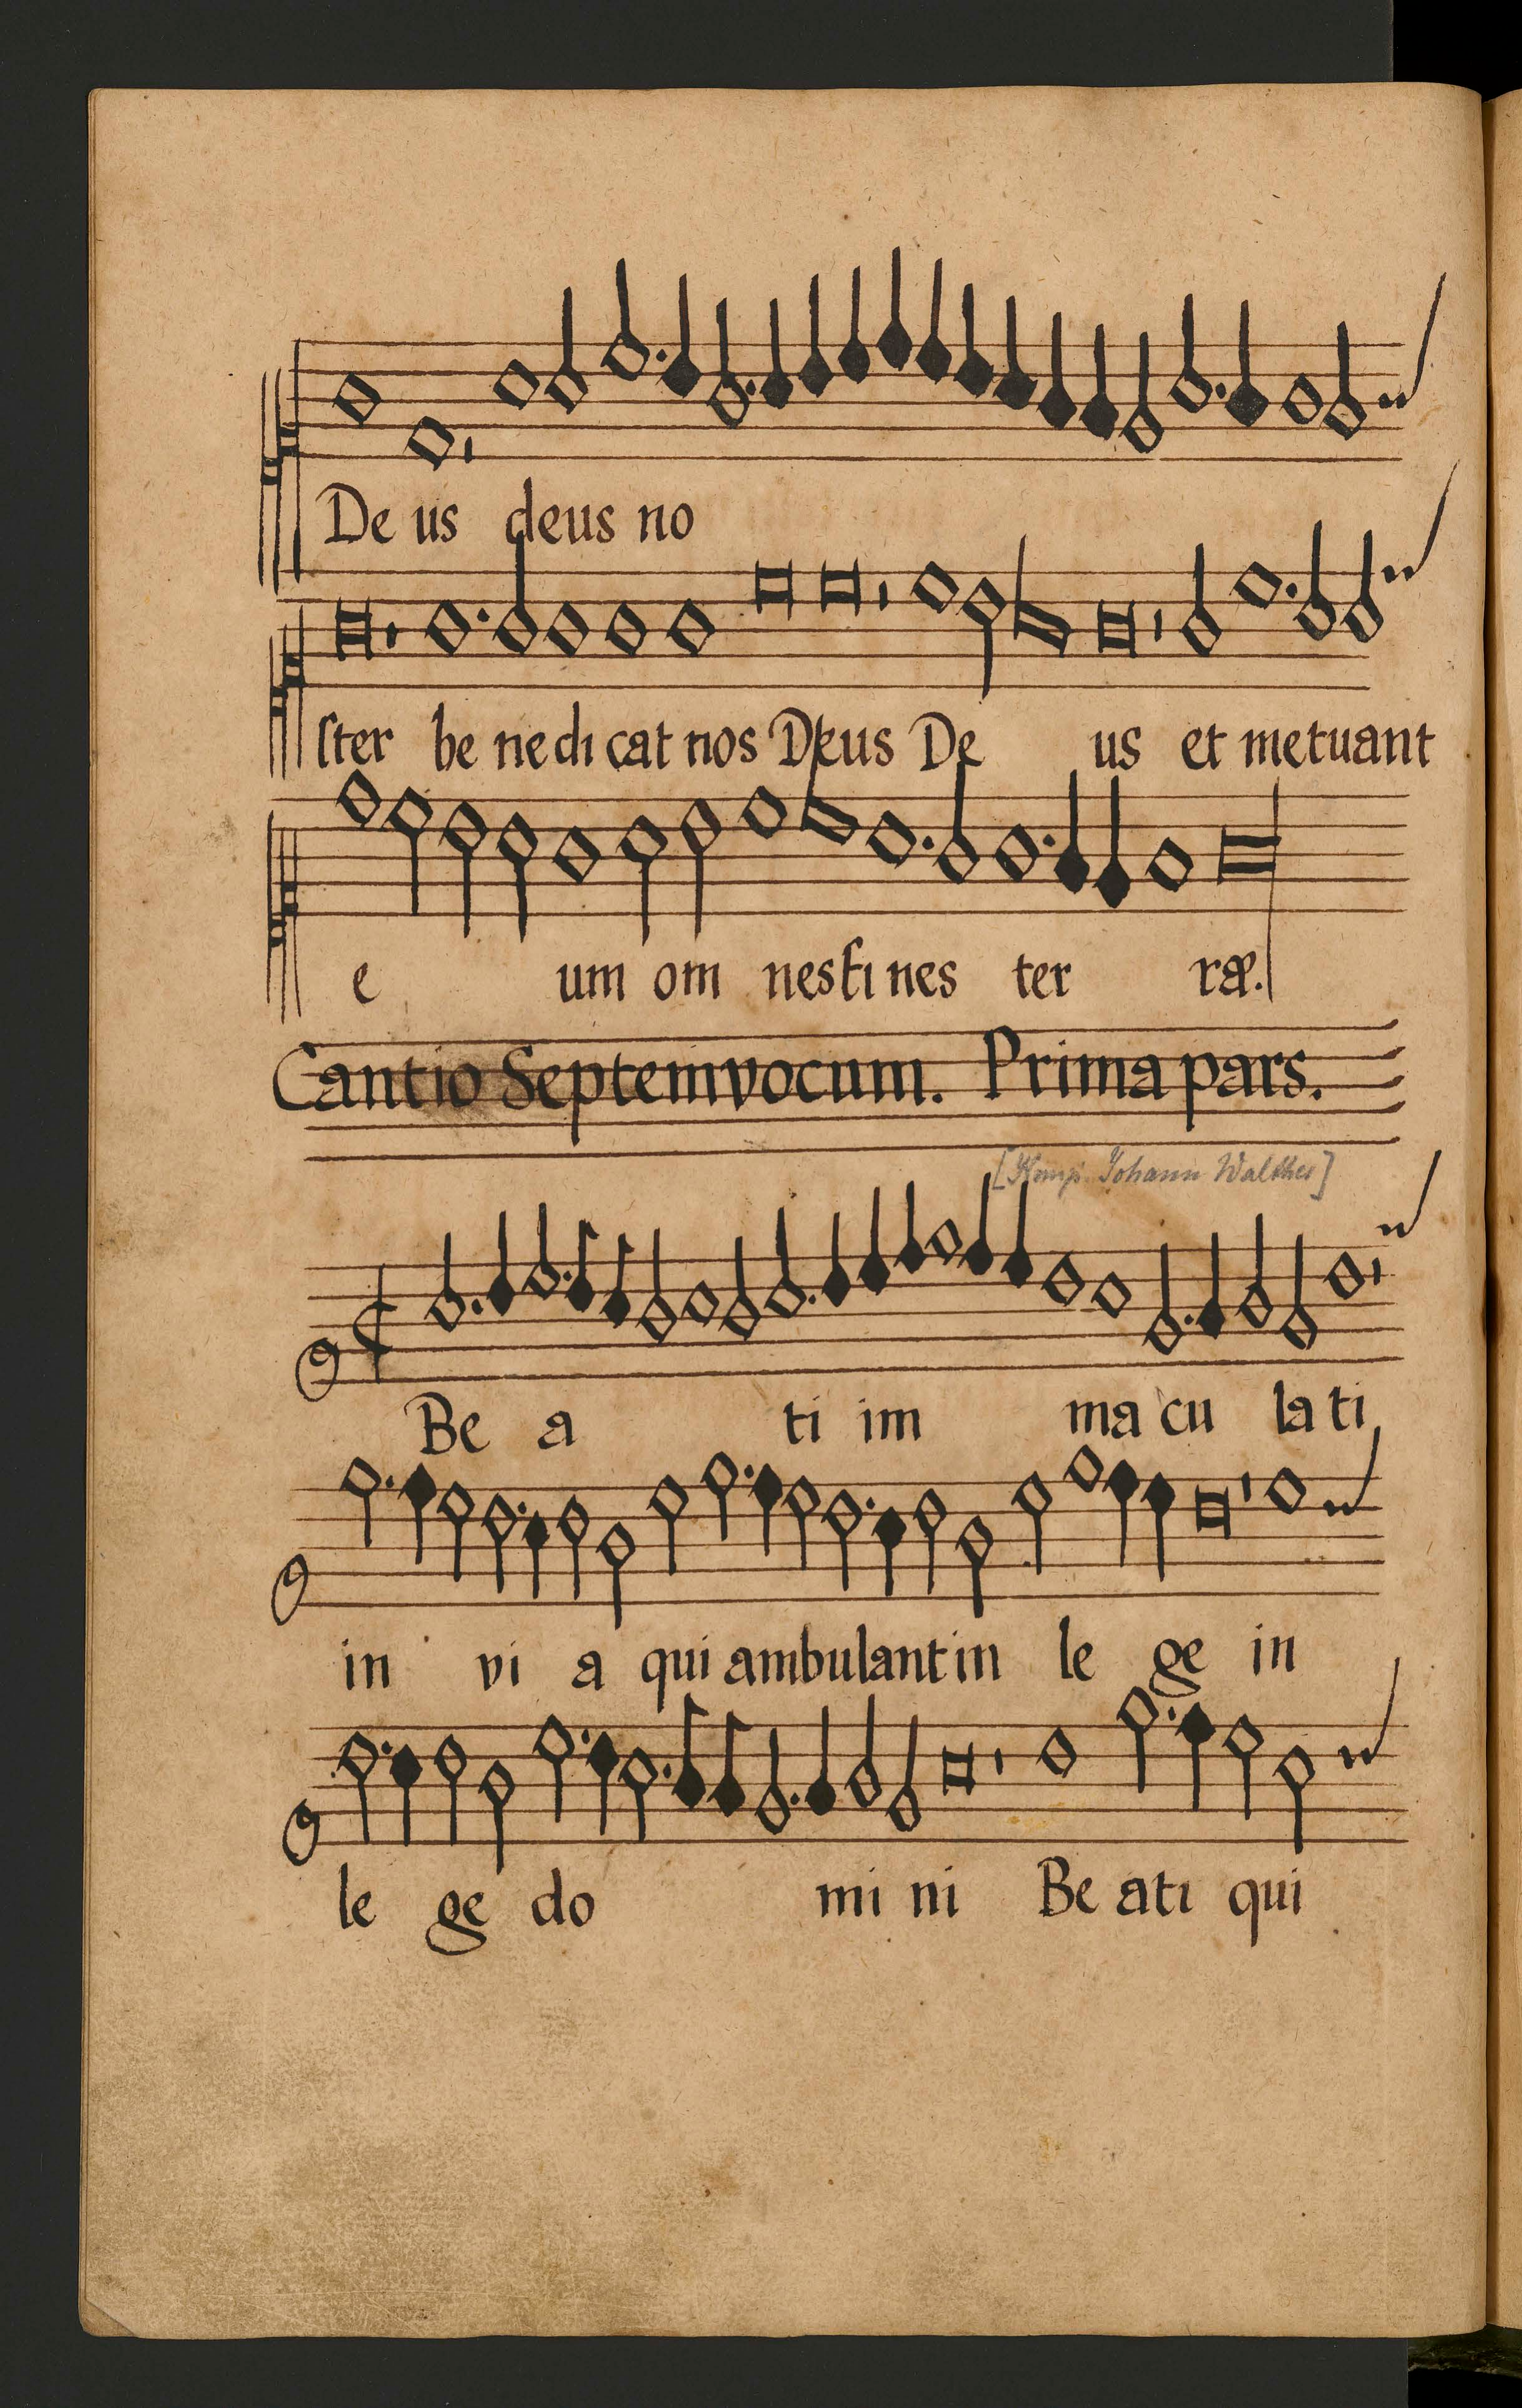 De us deus no
ster be ne di cat nos Deus De us et metuant
e um om nes fi nes ter ræ.
Cantio Septem vocum. Prima pars.
[Komp. Johann Walther]
Be a ti im ma cu la ti
in vi a qui ambulant in le ge in
le ge do mi ni Be ati qui